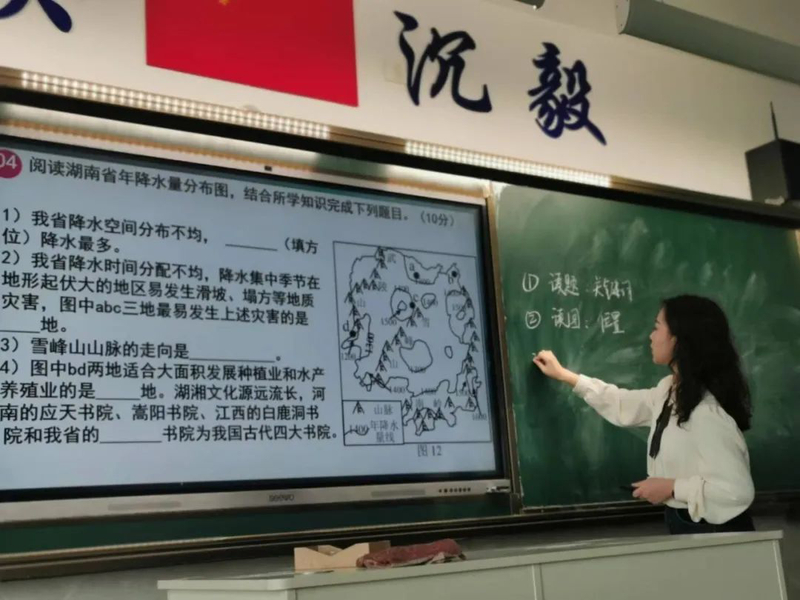 沉毅
04 阅读湖南省年降水量分布图，结合所学知识完成下列题目。（10分）
1）我省降水空间分布不均，______（填方
位）降水最多。
2）我省降水时间分配不均，降水集中季节在
地形起伏大的地区易发生滑坡、塌方等地质
灾害，图中abc三地最易发生上述灾害的是
____地。
3）雪峰山山脉的走向是__________。
4）图中bd两地适合大面积发展种植业和水产
养殖业的是____地。湖湘文化源远流长，河
南的应天书院、嵩阳书院、江西的白鹿洞书
院和我省的______书院为我国古代四大书院。
武
陵
山
雪
峰
山
南
岭
1400
山脉
1400 年降水
量线
图 12
seewo
① 读题：关键词
② 读图：位置